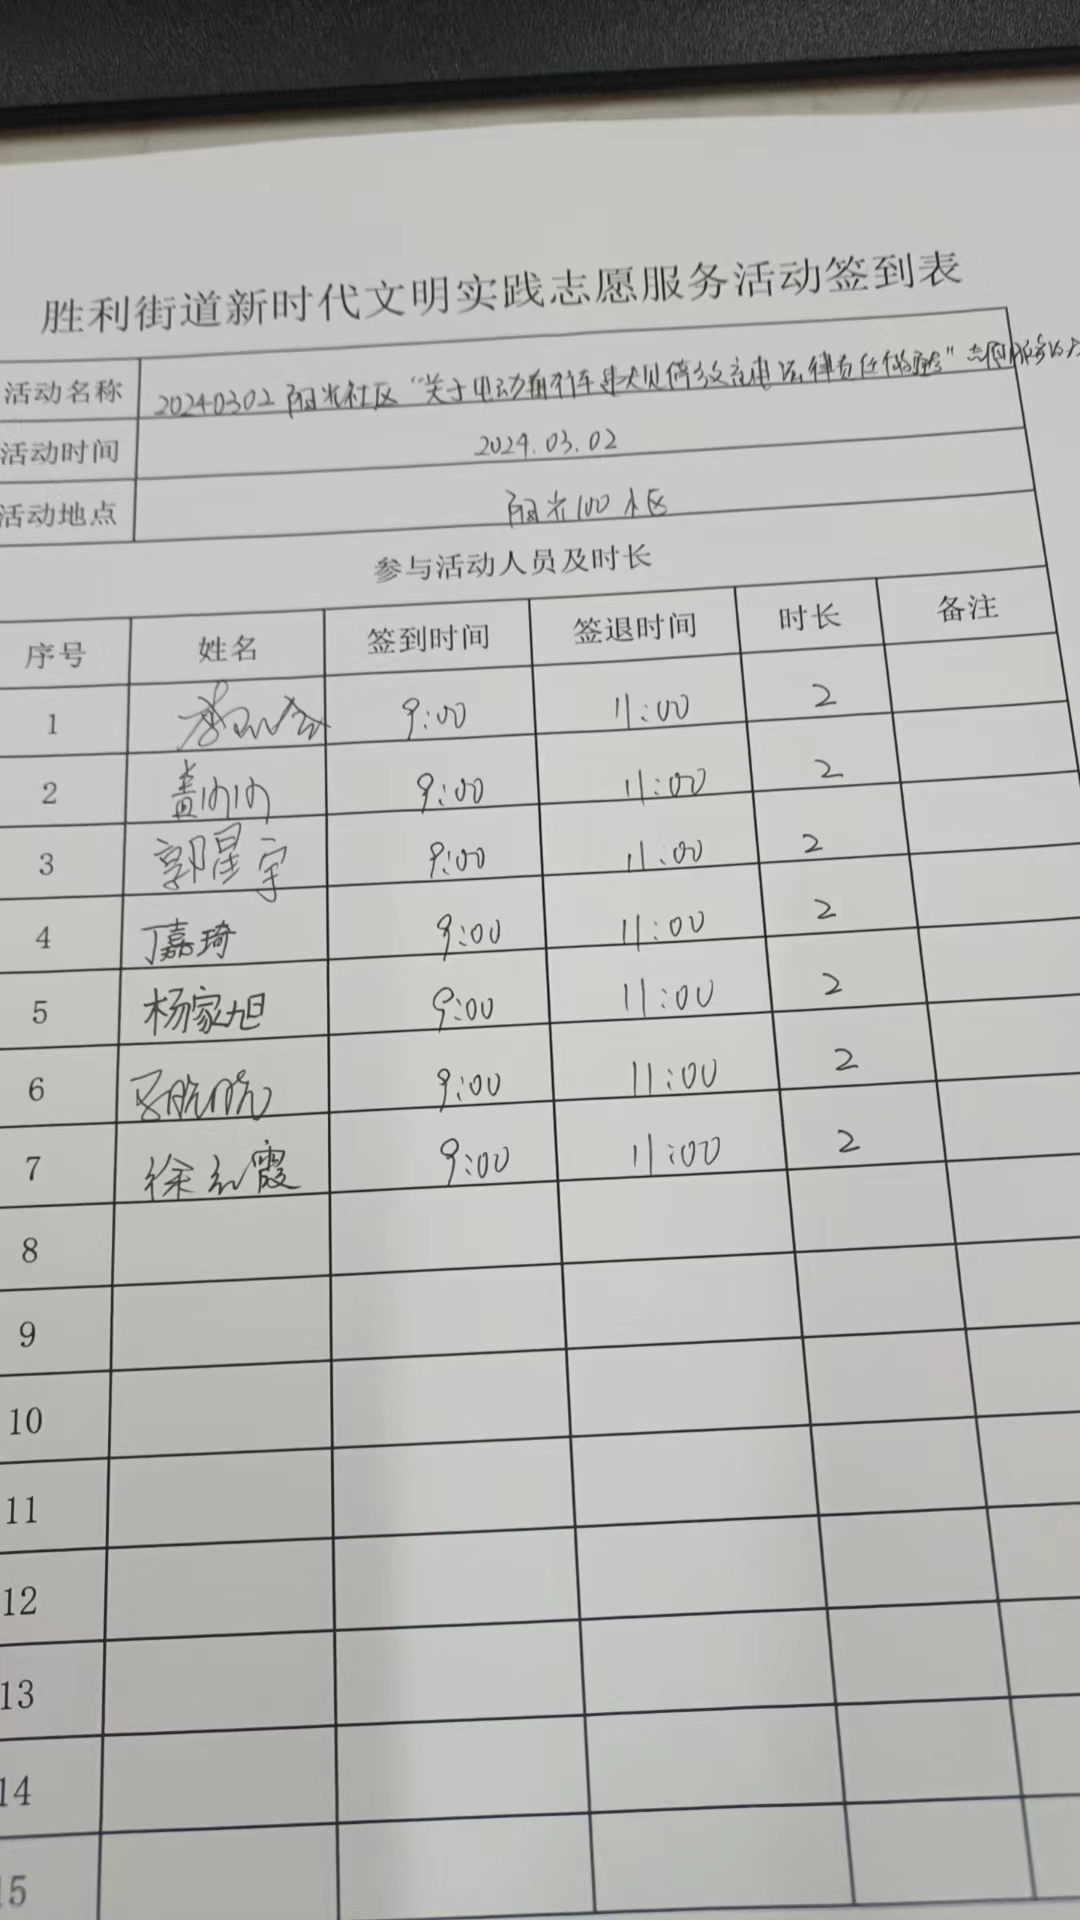 胜利街道新时代文明实践志愿服务活动签到表
活动名称 20240302 阳光社区“关于电动自行车违规停放充电法律责任的” 志愿服务活
活动时间 2024.03.02
活动地点 阳光100小区
参与活动人员及时长
序号 姓名 签到时间 签退时间 时长 备注
1 9:00 11:00 2
2 9:00 11:00 2
3 郭星宇 9:00 11:00 2
4 丁嘉琦 9:00 11:00 2
5 杨家旭 9:00 11:00 2
6 9:00 11:00 2
7 徐红霞 9:00 11:00 2
8
9
10
11
12
13
14
15